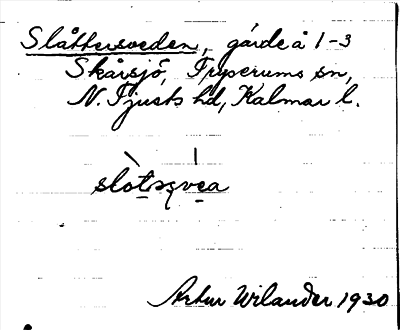 Slåttersveden, gärde å 1-3
Skårsjö, Tryserums sn,
N. Tjusts hd, Kalmar l.
slòtəʂvéa
Artur Wilander 1930